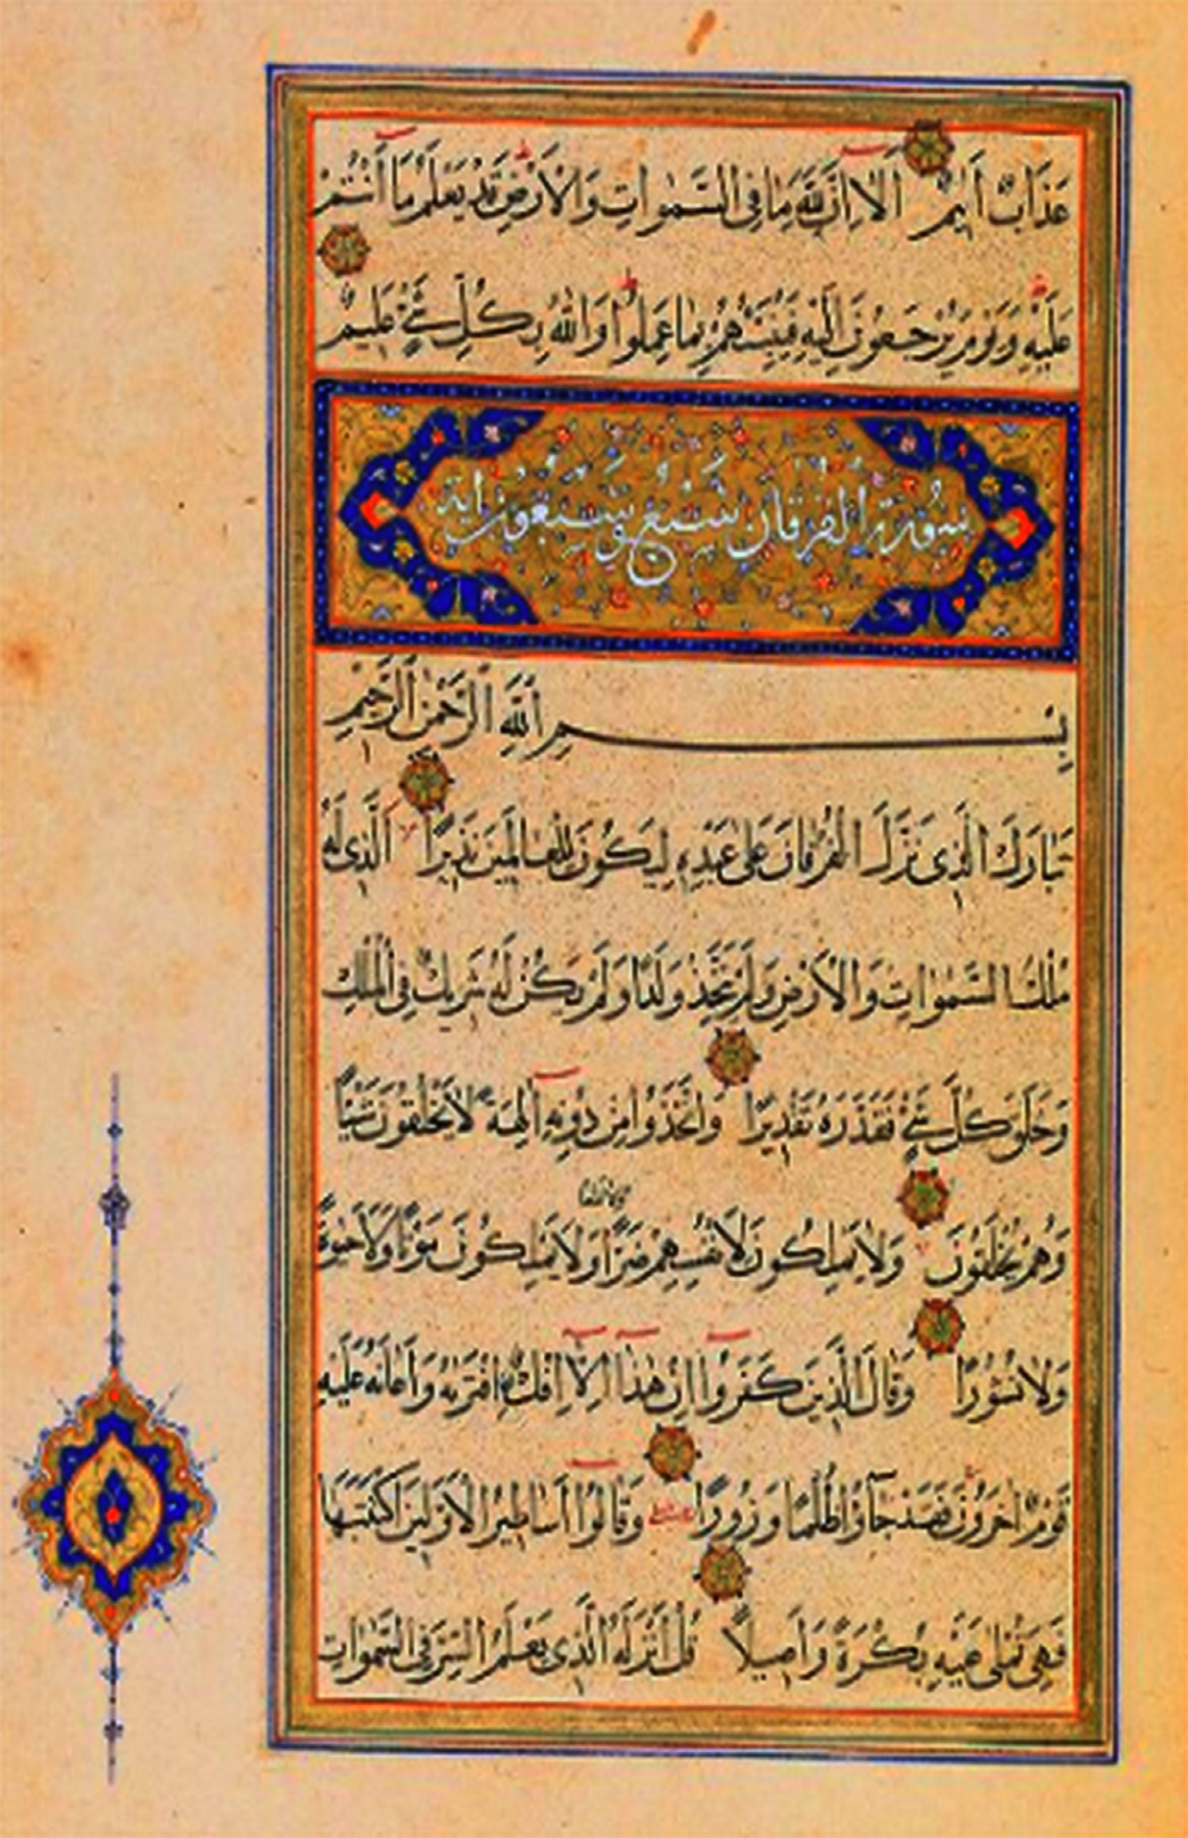 عَذَابٌ أَلِيمٌ اَلَا اِنَّ لِلّٰهِ مَا فِى السَّمٰوَاتِ وَالْاَرْضِ قَدْ يَعْلَمُ مَا اَنْتُمْ
عَلَيْهِ وَيَوْمَ يُرْجَعُونَ اِلَيْهِ فَيُنَبِّئُهُمْ بِمَا عَمِلُوا وَاللّٰهُ بِكُلِّ شَيْءٍ عَلِيمٌ
سُورَةُ الْفُرْقَانِ سَبْعٌ وَسَبْعُونَ اٰيَة
بِسْمِ اللّٰهِ الرَّحْمٰنِ الرَّحِيمِ
تَبَارَكَ الَّذِى نَزَّلَ الْفُرْقَانَ عَلٰى عَبْدِهِ لِيَكُونَ لِلْعَالَمِينَ نَذِيرًا اَلَّذِى لَهُ
مُلْكُ السَّمٰوَاتِ وَالْاَرْضِ وَلَمْ يَتَّخِذْ وَلَدًا وَلَمْ يَكُنْ لَهُ شَرِيكٌ فِى الْمُلْكِ
وَخَلَقَ كُلَّ شَيْءٍ فَقَدَّرَهُ تَقْدِيرًا وَاتَّخَذُوا مِنْ دُونِهِ اٰلِهَةً لَا يَخْلُقُونَ شَيْئًا
ولا نفعا
وَهُمْ يُخْلَقُونَ وَلَا يَمْلِكُونَ لِاَنْفُسِهِمْ ضَرًّا وَلَا يَمْلِكُونَ مَوْتًا وَلَا حَيٰوةً
وَلَا نُشُورًا وَقَالَ الَّذِينَ كَفَرُوا اِنْ هٰذَا اِلَّا اِفْكٌ افْتَرٰيهُ وَاَعَانَهُ عَلَيْهِ
قَوْمٌ اٰخَرُونَ فَقَدْ جَاؤُا ظُلْمًا وَزُورًا وَقَالُوا اَسَاطِيرُ الْاَوَّلِينَ اكْتَتَبَهَا
فَهِىَ تُمْلٰى عَلَيْهِ بُكْرَةً وَاَصِيلًا قُلْ اَنْزَلَهُ الَّذِى يَعْلَمُ السِّرَّ فِى السَّمٰوَاتِ